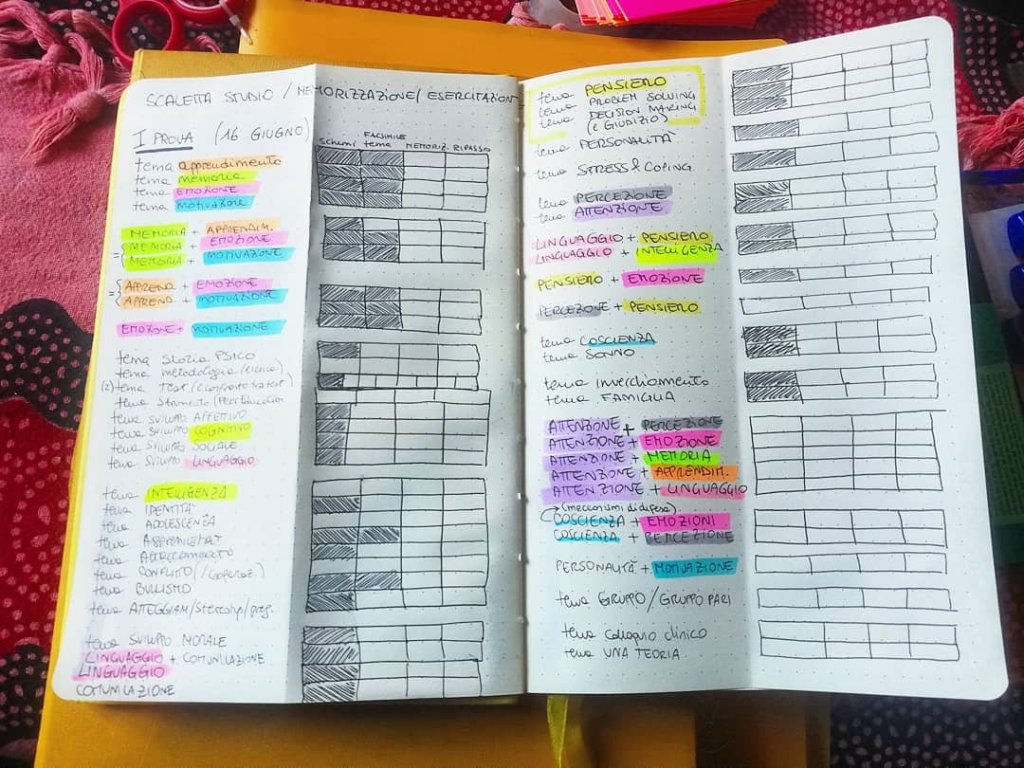 SCALETTA STUDIO / MEMORIZZAZIONE / ESERCITAZION
I PROVA (16 GIUGNO)
FACSIMILE
Schemi tema MEMORIZ. RIPASSO
tema apprendimento
tema memoria
tema EMOZIONE
tema motivazione
MEMORIA + APPRENDIM.
MEMORIA + EMOZIONE
MEMORIA + MOTIVAZIONE
APPREND + EMOZIONE
APPREND + MOTIVAZIONE
EMOZIONE + MOTIVAZIONE
tema storia PSICO
tema metodologia
(2) tema TEST
tema Strumento
tema SVILUPPO AFFETTIVO
tema SVILUPPO COGNITIVO
tema SVILUPPO SOCIALE
tema SVILUPPO LINGUAGGIO
tema INTELLIGENZA
tema IDENTITÀ
tema ADOLESCENZA
tema
tema ATTACCAMENTO
tema CONFLITTO
tema BULLISMO
tema ATTEGGIAM/stereotip/preg.
tema SVILUPPO MORALE
LINGUAGGIO + COMUNICAZIONE
LINGUAGGIO
COMUNICAZIONE
tema PENSIERO
tema PROBLEM SOLVING
tema DECISION MAKING
(e GIUDIZIO)
tema PERSONALITÀ
tema STRESS & COPING
tema PERCEZIONE
tema ATTENZIONE
LINGUAGGIO + PENSIERO
LINGUAGGIO + INTELLIGENZA
PENSIERO + EMOZIONE
PERCEZIONE + PENSIERO
tema COSCIENZA
tema SONNO
tema invecchiamento
tema FAMIGLIA
ATTENZIONE + PERCEZIONE
ATTENZIONE + EMOZIONE
ATTENZIONE + MEMORIA
ATTENZIONE + APPRENDIM.
ATTENZIONE + LINGUAGGIO
(meccanismi di difesa)
COSCIENZA + EMOZIONI
COSCIENZA + PERCEZIONE
PERSONALITÀ + MOTIVAZIONE
tema GRUPPO / GRUPPO PARI
tema colloquio clinico
tema UNA TEORIA